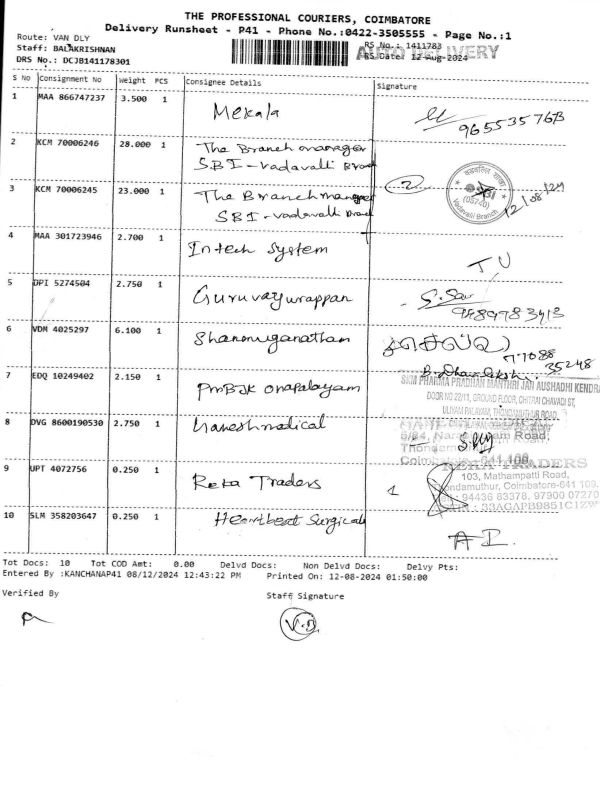 THE PROFESSIONAL COURIERS, COIMBATORE
Delivery Runsheet - P41 - Phone No.:0422-3505555 - Page No.:1
Route: VAN DLY
Staff: BALAKRISHNAN
DRS No.: DCJB141178301
RS No.: 1411783
RS Date: 12-Aug-2024
AUTO DELIVERY
S No Consignment No Weight PCS Consignee Details Signature
1 MAA 866747237 3.500 1 Mekala
9655357673
2 KCM 70006246 28.000 1 The Branch manager
SBI - Vadavalli Branch
3 KCM 70006245 23.000 1 The Branch manager
SBI - Vadavalli Branch
SBI
(05740)
Vadavalli Branch
12/08/24
4 MAA 301723946 2.700 1 Intech System
5 DPI 5274504 2.750 1 Guruvayurappan
6 VDM 4025297 6.100 1 Shanmuganatham
35248
7 EDQ 10249402 2.150 1 PMBJK Onapalayam
SKM PHARMA PRADHAN MANTHRI JAN AUSHADHI KENDRA
DOOR NO 22/11, GROUND FLOOR, CHITRAI CHAVADI ST,
8 DVG 8600190530 2.750 1 Ganesh madical
Coimbatore-641 109
9 UPT 4072756 0.250 1 Reka Traders
REKA TRADERS
103, Mathampatti Road,
Thondamuthur, Coimbatore-641 109.
94436 83378, 97900 07270
10 SLM 358203647 0.250 1 Heartbeat Surgicals
Tot Docs: 10 Tot COD Amt: 0.00 Delvd Docs: Non Delvd Docs: Delvy Pts:
Entered By :KANCHANAP41 08/12/2024 12:43:22 PM Printed On: 12-08-2024 01:50:00
Verified By Staff Signature